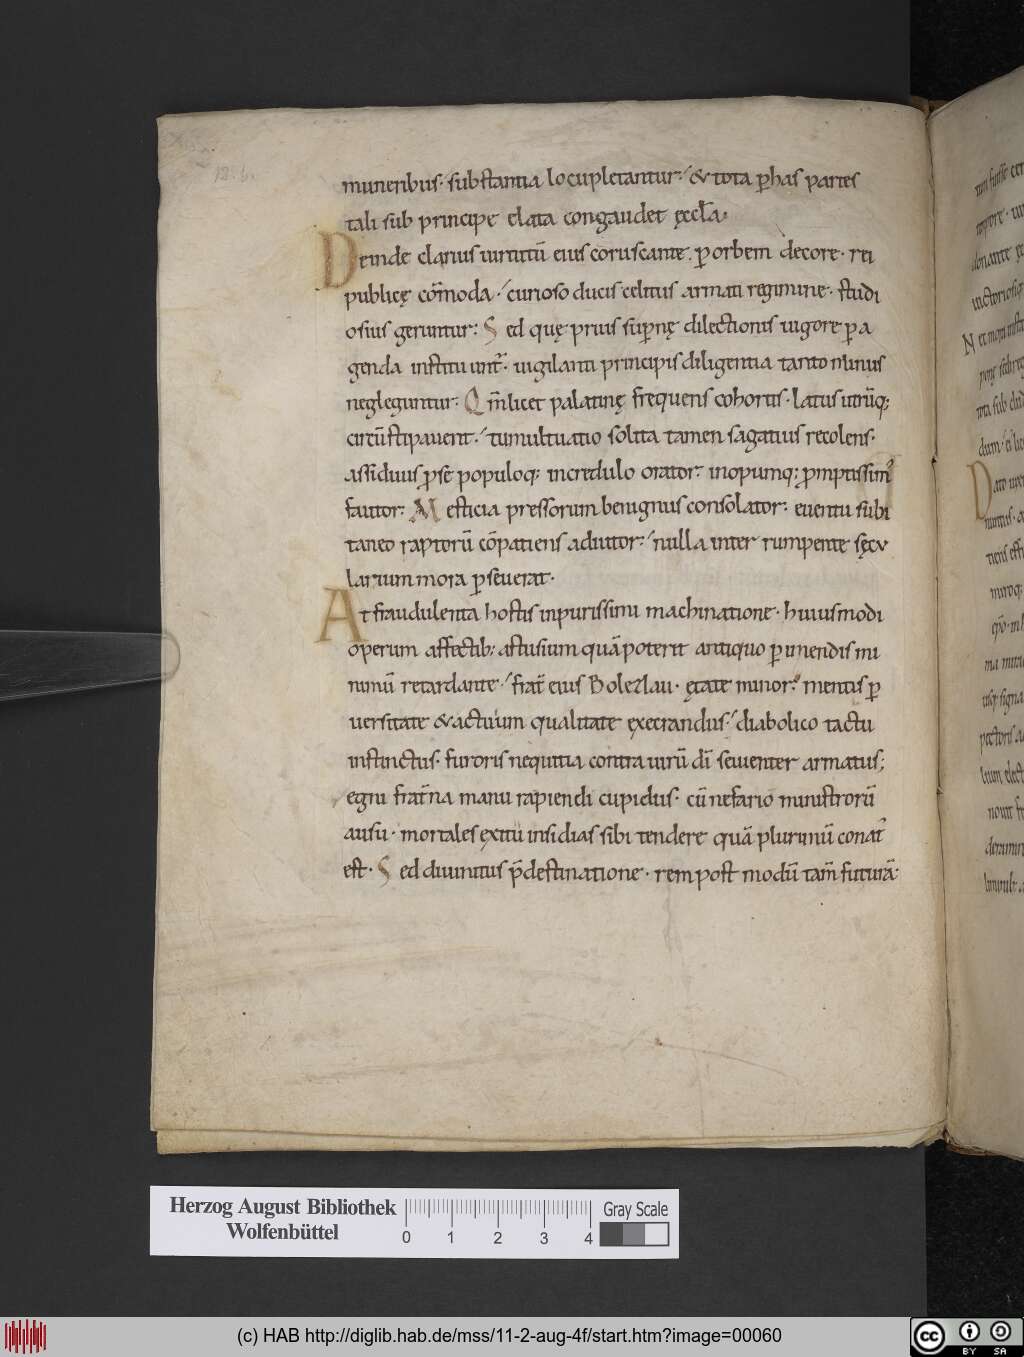 muneribus· substantia locupletantur·/ & tota p̱ has partes
tali sub principe elata congaudet ęccl̄a·
Deinde clarius uirtutū eius coruscante. p̱ orbem decore· rei
publicę com̄moda·/ curioso ducis celitus armati regimine· studi
osius geruntur: Sed quę prius sup̱nę dilectionis uigore p̱ a
genda instituunt᷑· uigilanti principis diligentia tanto minus
negleguntur: Qm̄ licet palatinę frequens cohortis· latus utrūq;
circūstipauerit·/ tumultuatio solita tamen sagatius recolens·
assiduus p̱ se populoq; incredulo orator· inopumq; p̱mptissim᷒
fautor: Mesticia pressorum benignus consolator: euentu subi
taneo raptorū cōpatiens adiutor:/ nulla inter rumpente sęcu
larium mora p̱seuerat·
At fraudulenta hostis inpurissimi machinatione· huiusmodi
operum affectib; astusium quā poterit antiquo p̱imendis ini
nimū retardante·/ frat̄ eius Bolezlau· ętate minor· mentis p̱
uersitate & actuum qualitate execrandus·/ diabolico tactu
instinctus· furoris nequitia contra uirū dī seuienter armatus;
egni frat̄na manu rapiendi cupidus· cū nefario ministrorū
ausu· mortales exitū insidias sibi tendere quā plurimū conat᷑
est· Sed diuinitus p̄destinatione· rem post modū tam̄ futurā·
Herzog August Bibliothek
Wolfenbüttel
0 1 2 3 4
Gray Scale
(c) HAB http://diglib.hab.de/mss/11-2-aug-4f/start.htm?image=00060
cc BY SA